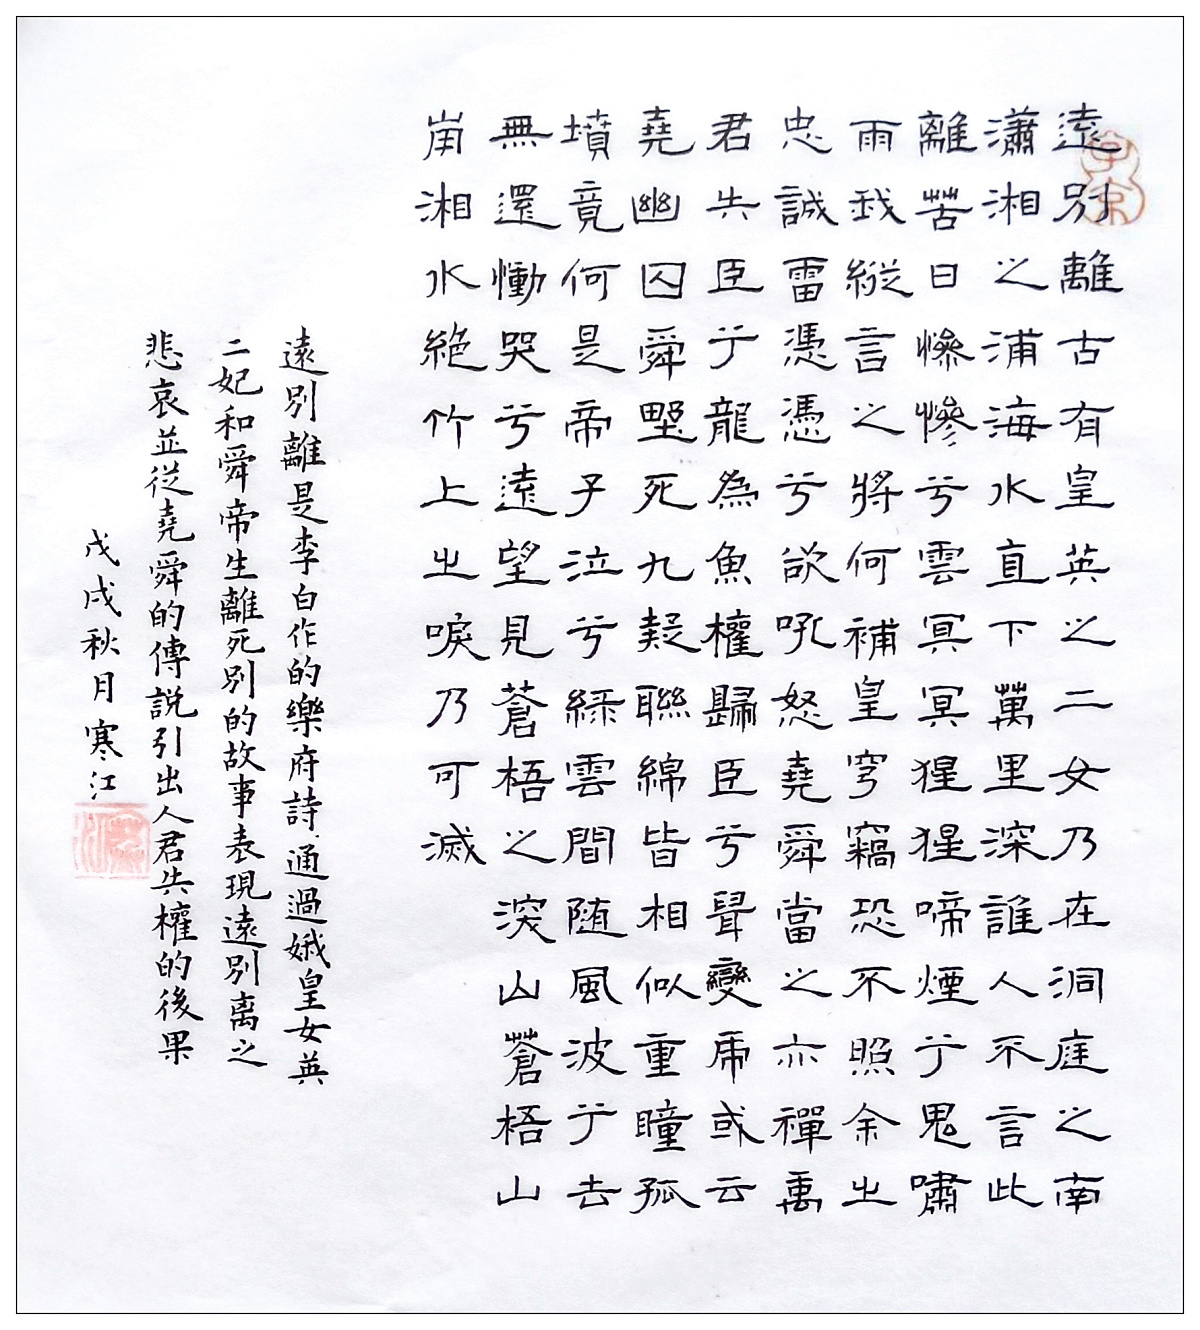 遠別離古有皇英之二女乃在洞庭之南
瀟湘之浦海水直下萬里深誰人不言此
離苦日慘慘兮雲冥冥猩猩啼煙兮鬼嘯
雨我縱言之將何補皇穹竊恐不照余之
忠誠雷憑憑兮欲吼怒堯舜當之亦禪禹
君失臣兮龍為魚權歸臣兮鼠變虎或云
堯幽囚舜野死九疑聯綿皆相似重瞳孤
墳竟何是帝子泣兮綠雲間随風波兮去
無還慟哭兮遠望見蒼梧之深山蒼梧山
崩湘水絕竹上之淚乃可滅
遠別離是李白作的樂府詩通過娥皇女英
二妃和舜帝生離死別的故事表現遠別离之
悲哀並從堯舜的傳説引出人君失權的後果
戊戌秋月寒江